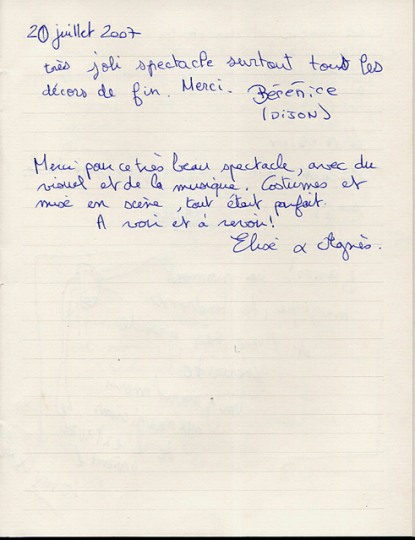 20 juillet 2007
très joli spectacle surtout tout les
décors de fin. Merci. Bérénice
(DIJON)
Merci pour ce très beau spectacle, avec du
visuel et de la musique. Costumes et
mise en scène, tout était parfait.
A voir et à revoir!
Elise & Agnès.